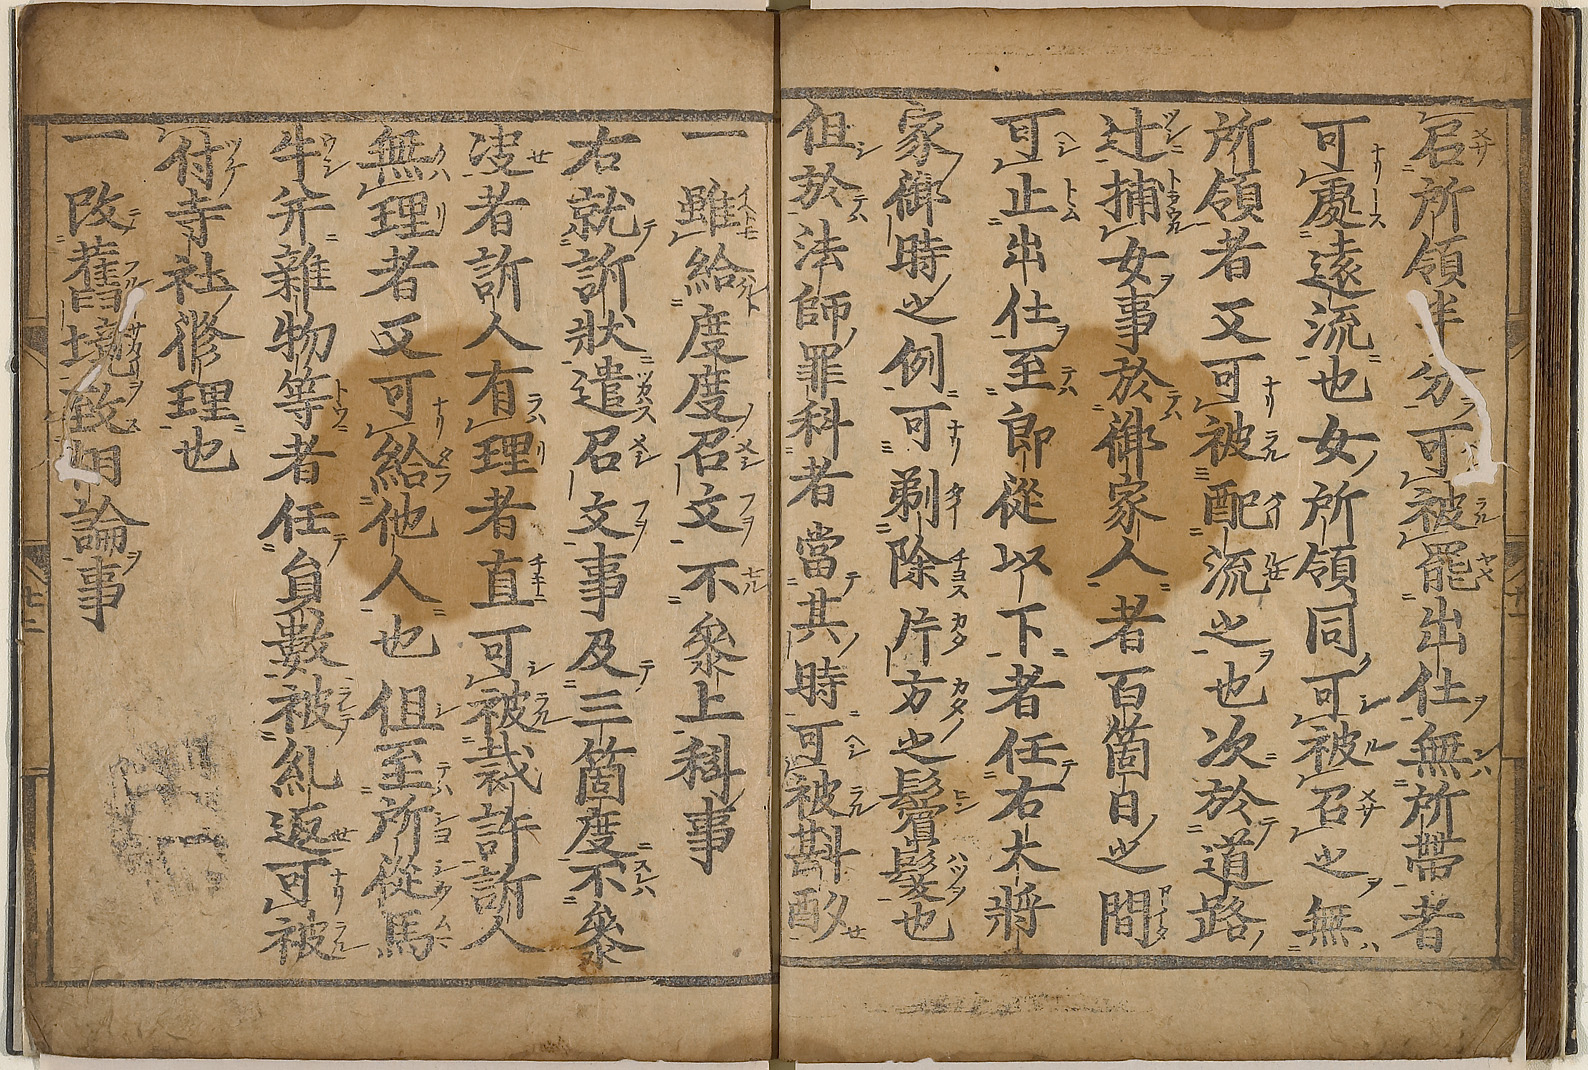 召所領半分可被罷出仕無所帶者
可處遠流也女所領同可被召之無
所領者又可被配流之也次於道路
辻捕女事於御家人者百箇日之間
可止出仕至郎從以下者任右大將
家御時之例可剃除片方之鬢髮也
但於法師罪科者當其時可被斟酌
一 雖給度度召文不參上科事
右就訴狀遣召文事及三箇度不參
决者訴人有理者直可被裁許訴人
無理者又可給他人也但至所從馬
牛并雜物等者任員數被糺返可被
付寺社修理也
一 改舊境致相論事